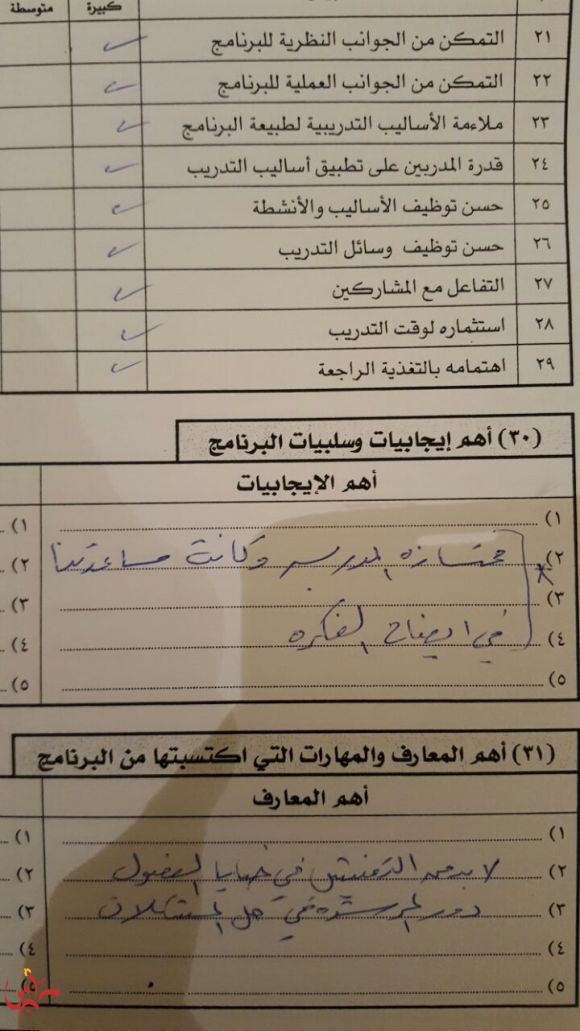 كبيرة متوسطة
٢١ التمكن من الجوانب النظرية للبرنامج
٢٢ التمكن من الجوانب العملية للبرنامج
٢٣ ملاءمة الأساليب التدريبية لطبيعة البرنامج
٢٤ قدرة المدربين على تطبيق أساليب التدريب
٢٥ حسن توظيف الأساليب والأنشطة
٢٦ حسن توظيف وسائل التدريب
٢٧ التفاعل مع المشاركين
٢٨ استثماره لوقت التدريب
٢٩ اهتمامه بالتغذية الراجعة
(٣٠) أهم إيجابيات وسلبيات البرنامج
أهم الإيجابيات
١) ١)
٢) ممتازه المدربه وكانت مساعدتنا ٢)
٣) ٣)
٤) في ايضاح الفكره ٤)
٥) ٥)
(٣١) أهم المعارف والمهارات التي اكتسبتها من البرنامج
أهم المعارف
١) ١)
٢) لابد من التفتيش في خبايا العقول ٢)
٣) دور المرشده في حل المشكلات ٣)
٤) ٤)
٥) ٥)